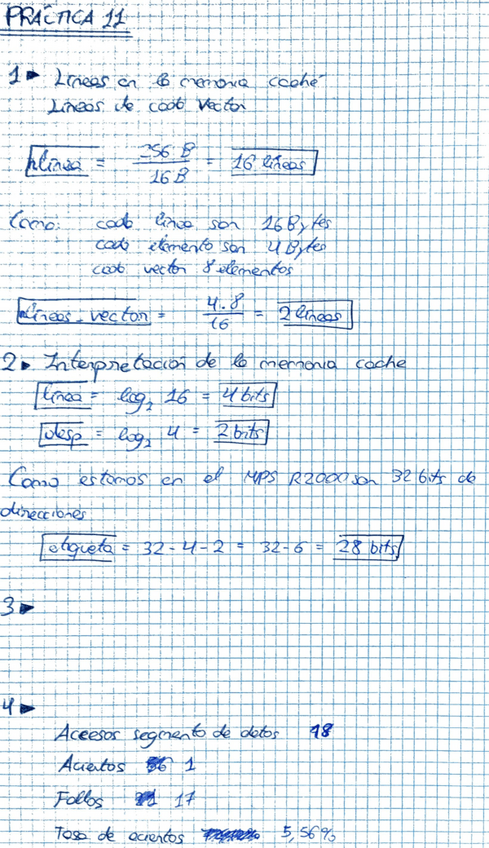 PRÁCTICA 11
1▶ Lineas en la memoria caché
Lineas de cada vector
nlinea = 256 B / 16 B = 16 lineas
Como: cada linea son 16 Bytes
cada elemento son 4 Bytes
cada vector 8 elementos
nlineas-vector = 4.8 / 16 = 2 lineas
2▶ Interpretación de la memoria cache
linea = log₂ 16 = 4 bits
desp = log₂ 4 = 2 bits
Como estamos en el MIPS R2000 son 32 bits de
direcciones
etiqueta = 32 - 4 - 2 = 32 - 6 = 28 bits
3▶
4▶
Accesos segmento de datos 18
Aciertos 1
Fallos 17
Tasa de aciertos 5,56%